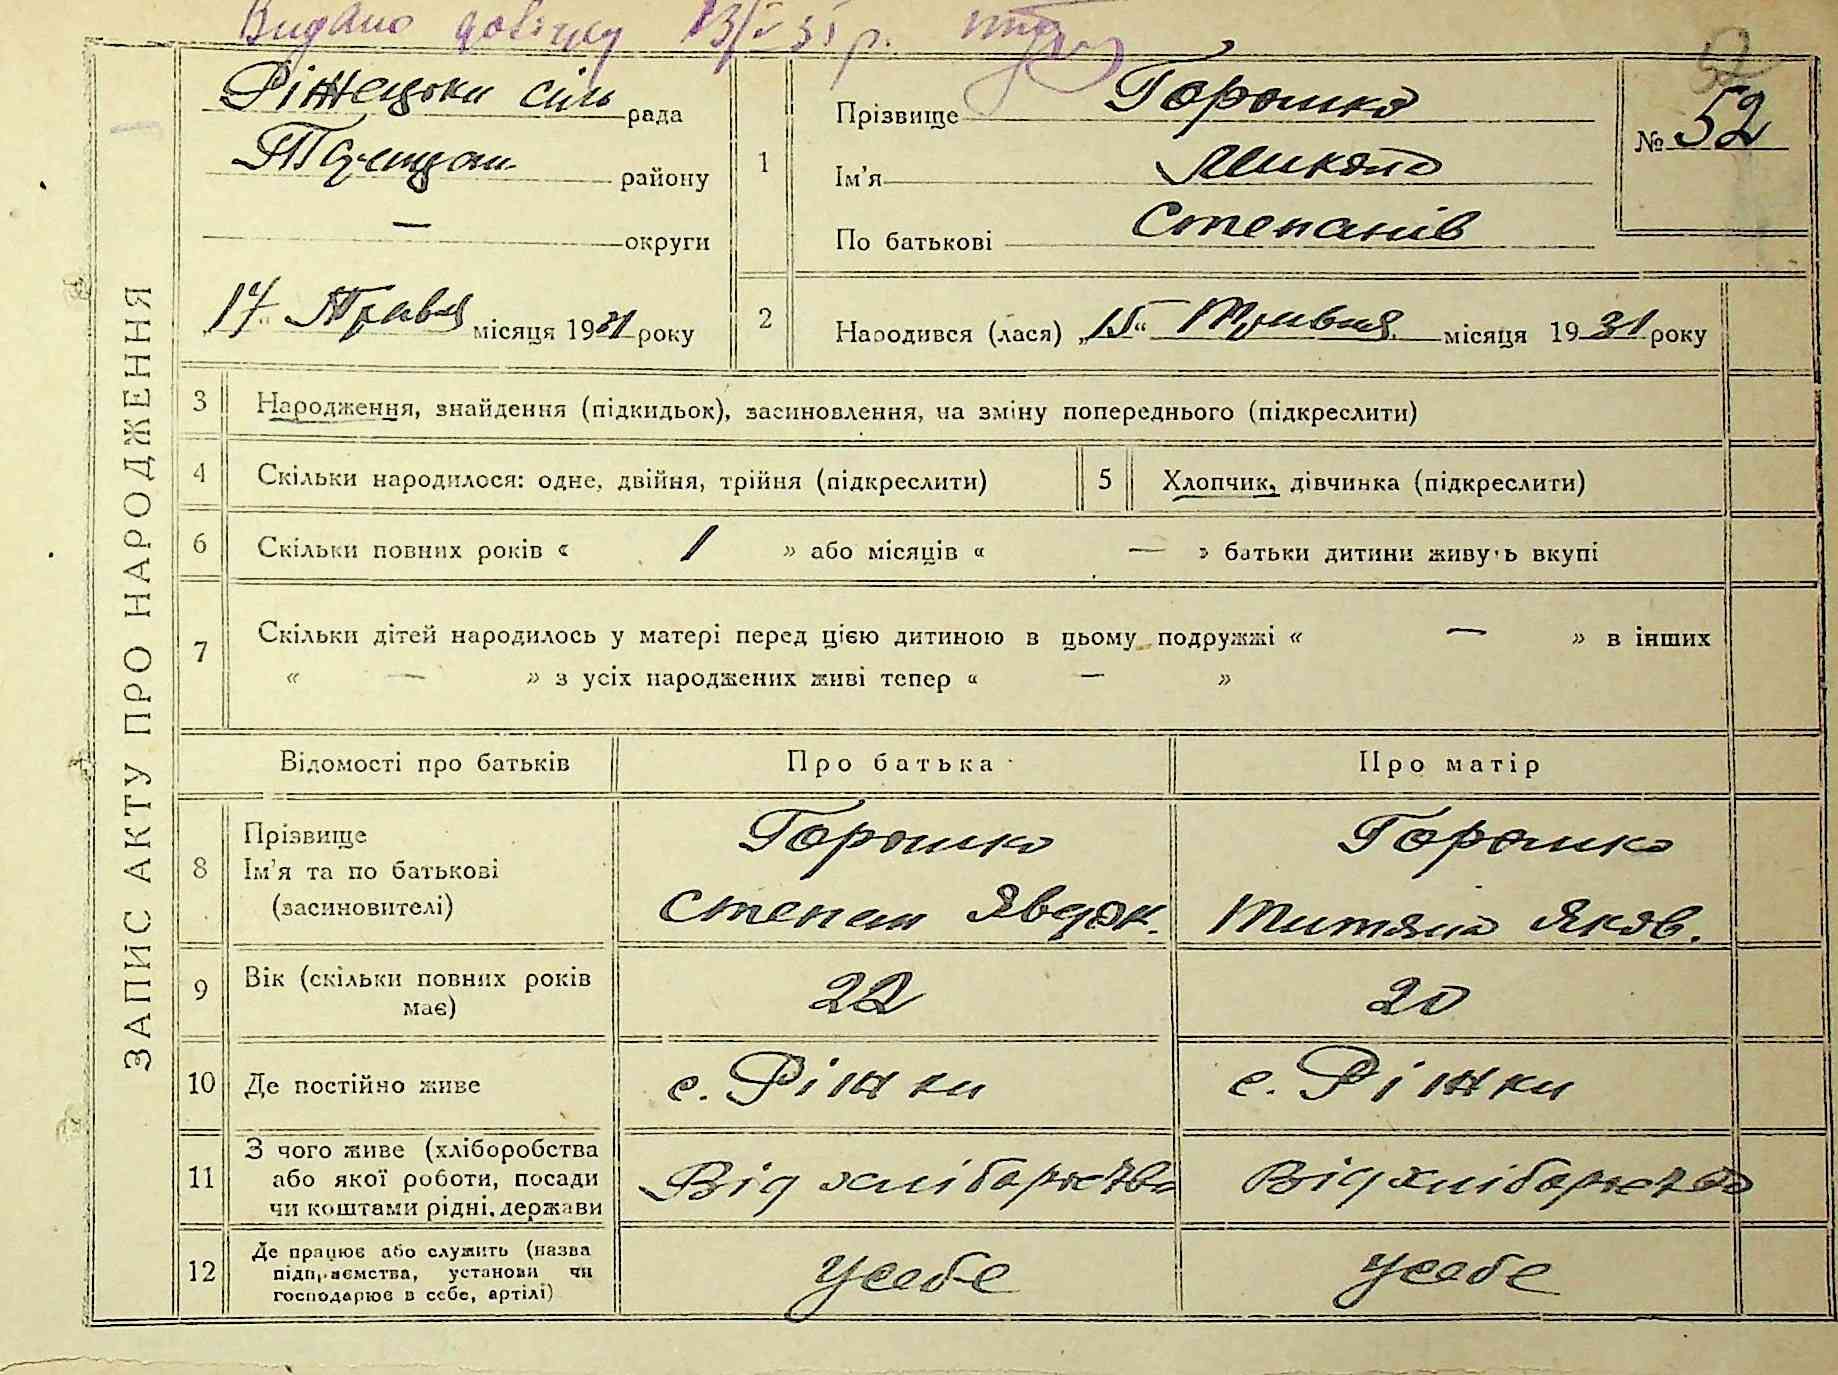 Видано довідку 13/V 31 р.
52
Ріжецька сіль рада
району
— округи
17 Травня місяця 1931 року
ЗАПИС АКТУ ПРО НАРОДЖЕННЯ
1
Прізвище Горошко
Ім'я Микола
По батькові Степанів
№ 52
2 Народився (лася) „15“ Травня місяця 1931 року
3 Народження, знайдення (підкидьок), засиновлення, на зміну попереднього (підкреслити)
4 Скільки народилося: одне, двійня, трійня (підкреслити)
5 Хлопчик, дівчинка (підкреслити)
6 Скільки повних років « 1 » або місяців « — » батьки дитини живуть вкупі
7 Скільки дітей народилось у матері перед цією дитиною в цьому подружжі « — » в інших
« — » з усіх народжених живі тепер « — »
Відомості про батьків
Про батька
Про матір
8 Прізвище
Ім'я та по батькові
(засиновителі)
Горошко
Степан Явдок.
Горошко
Титяна Яков.
9 Вік (скільки повних років
має)
22
20
10 Де постійно живе
с. Ріжки
с. Ріжки
11 З чого живе (хліборобства
або якої роботи, посади
чи коштами рідні, держави
Від хліборобства
Від хліборобства
12 Де працює або служить (назва
підприємства, установи чи
господарює в себе, артілі)
У себе
У себе